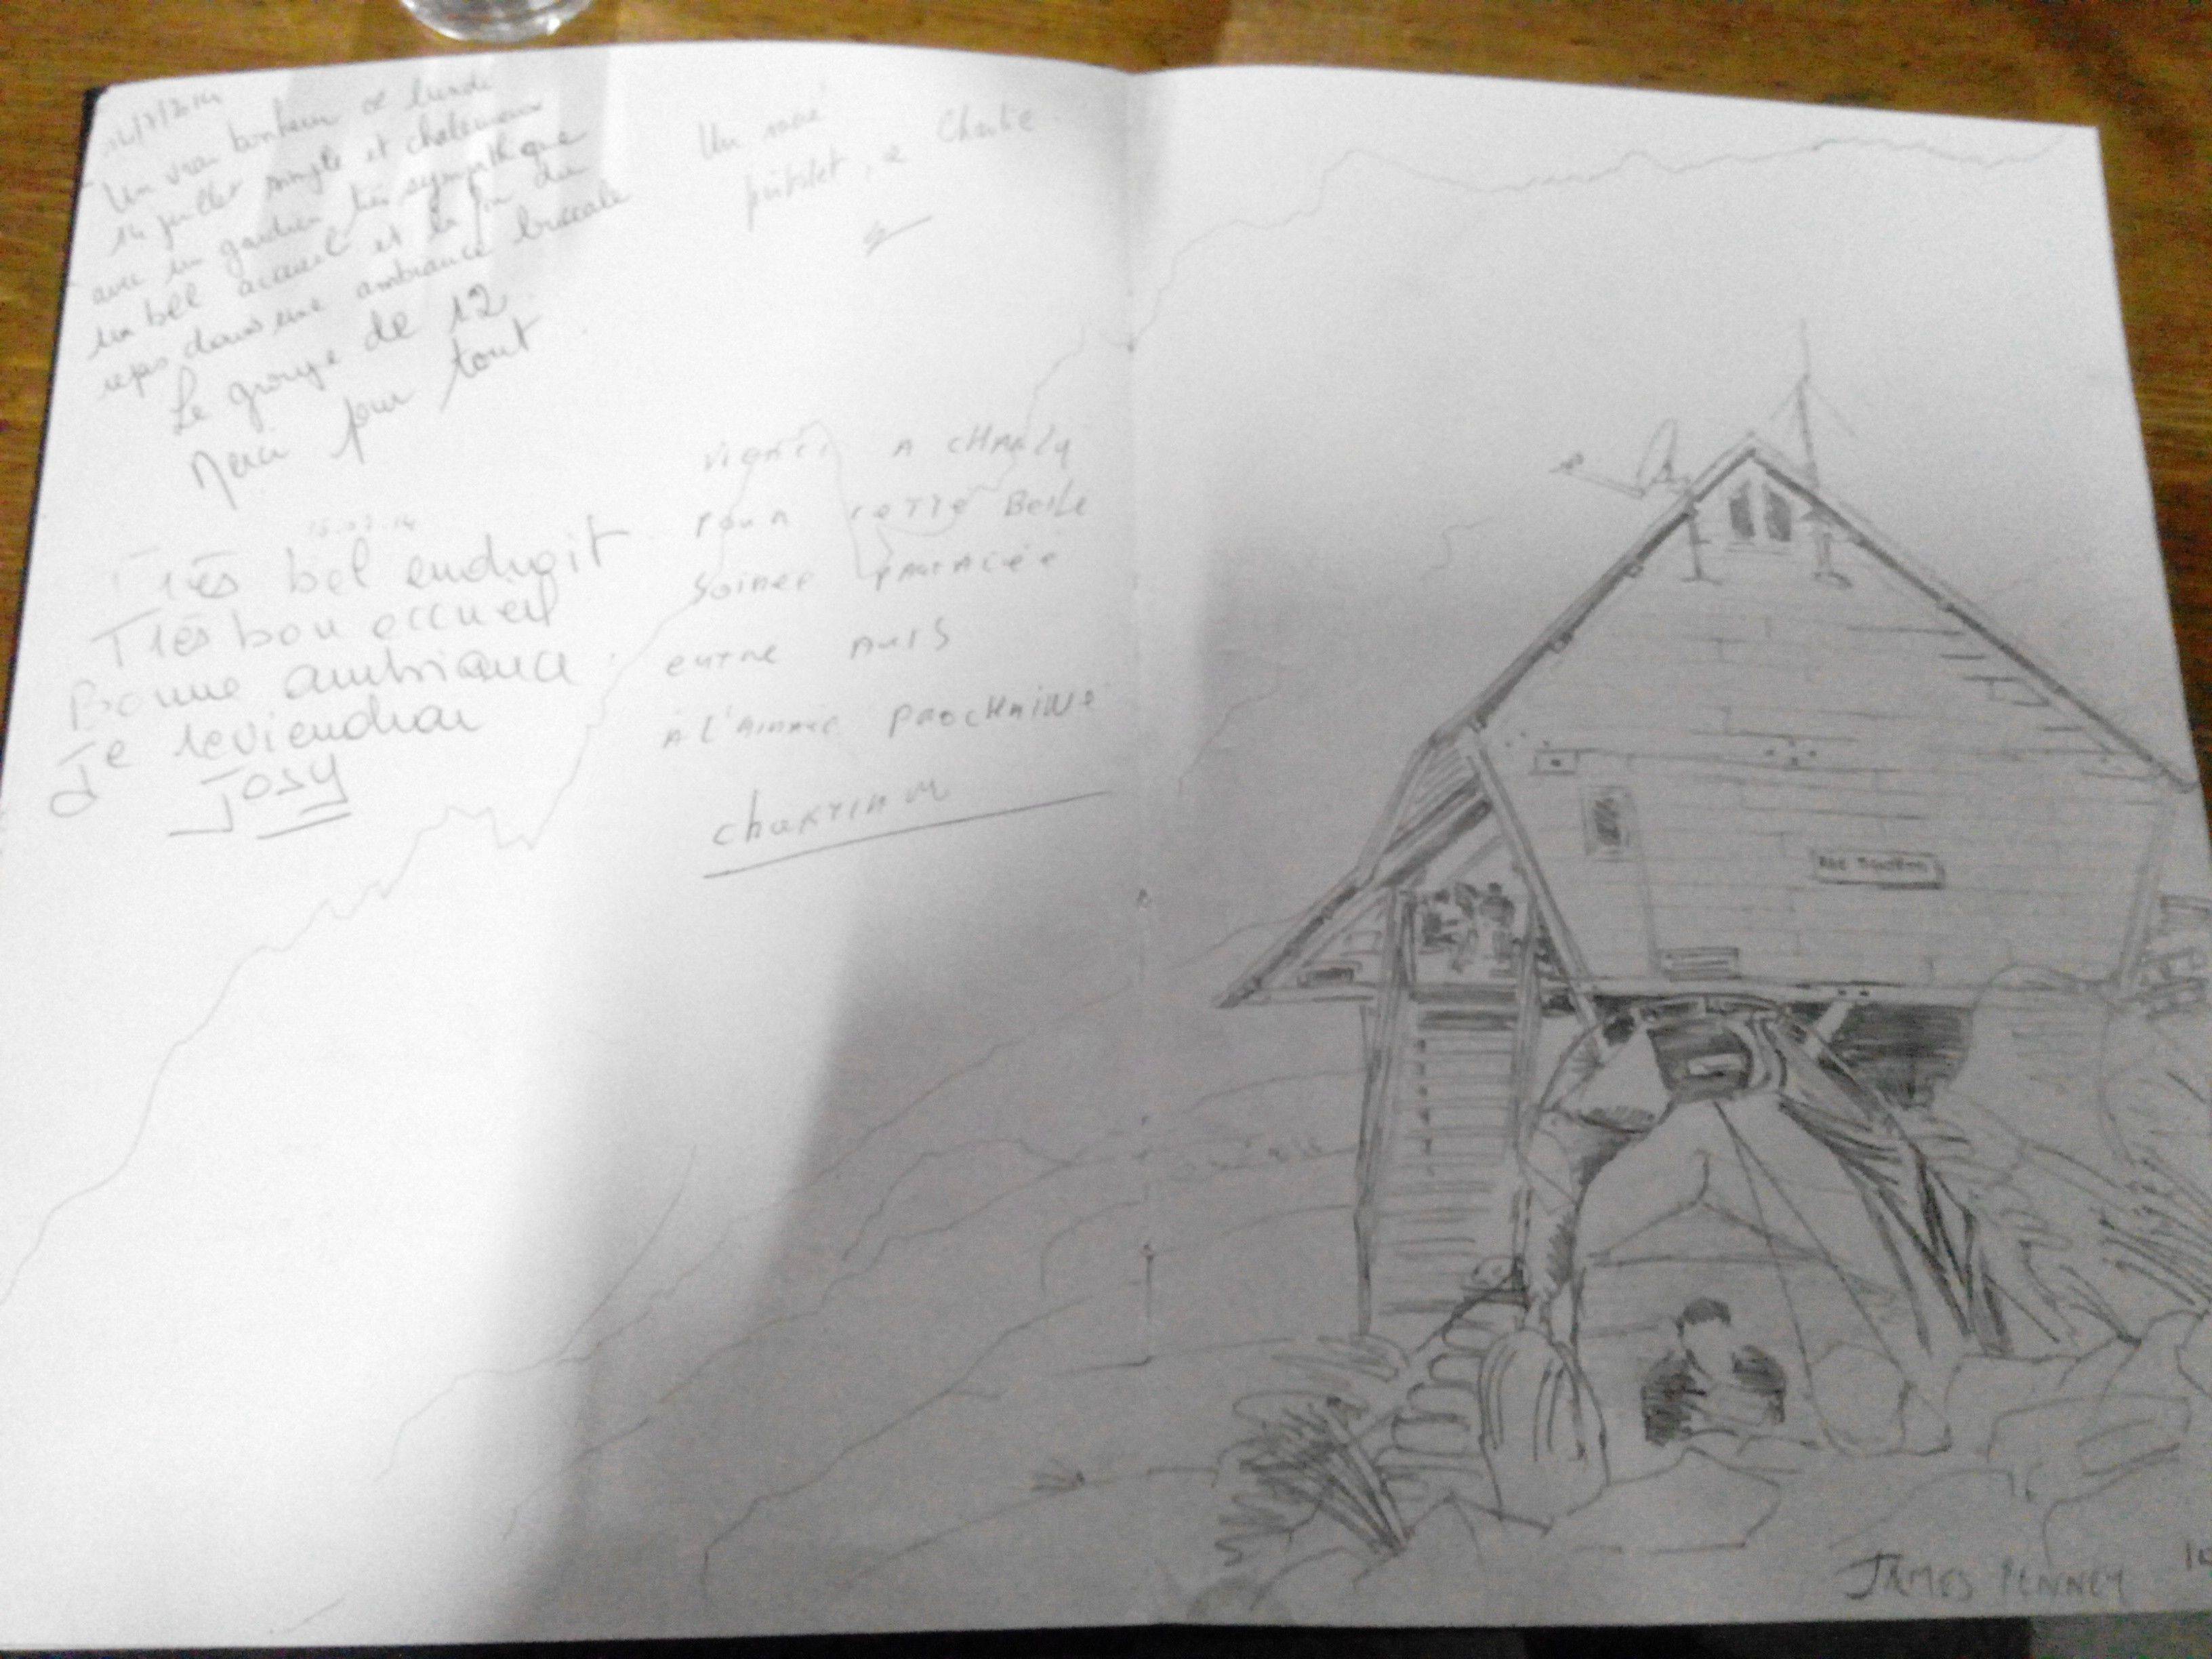 14/7/2014
Un vrai bonheur ce lundi
14 juillet simple et chaleureux
avec un gardien très sympathique
un bel accueil et la fin du
repas dans une ambiance
Le groupe de 12.
Merci pour tout.
15.07.14
Très bel endroit
Très bon accueil
Bonne ambiance.
Je reviendrai
Josy
Un
, à Charlie.
A CHARLY
POUR CETTE BELLE
SOIREE PARTAGÉE
ENTRE AMIS
A L'ANNÉE PROCHAINE
JAMES PENNEY